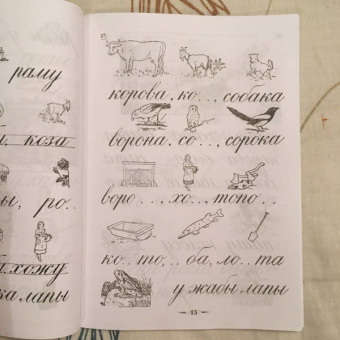 раму
, коза
ы, ро..
а, хожу
ка лапы
корова, ко.., собака
ворона, со.., сорока
воро..., хо.., топо..
ко..то, ..ба, ло..та
у жабы лапы